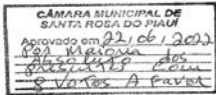 CÂMARA MUNICIPAL DE
SANTA ROSA DO PIAUÍ
Aprovado em 22/06/2022
Por Maioria
Absoluta dos
presentes com
8 votos A Favor